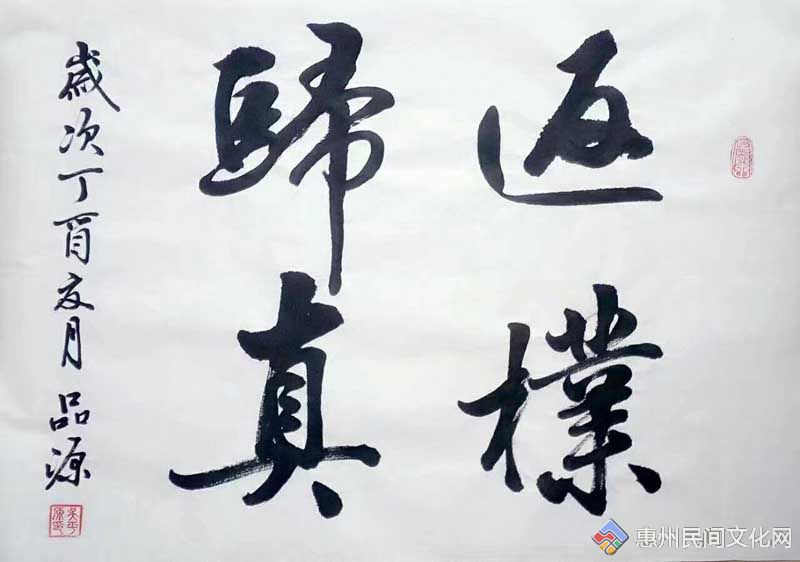 返樸
歸真
歲次丁酉夏月品源
惠州民间文化网